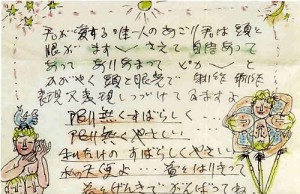 君が愛する唯一人のあごり君は頭と
眼がます〳〵さえて自信あって
あって ありあまって ピカーと
かがやく頭と眼覚で 制作 制作
表現又表現しつづけてるますよ
限り無くすばらしく…
限り無くやさしい
私だけのすばらしくやさしい
私の天使よ… 益々はりきって
益々げんきでがんばってね